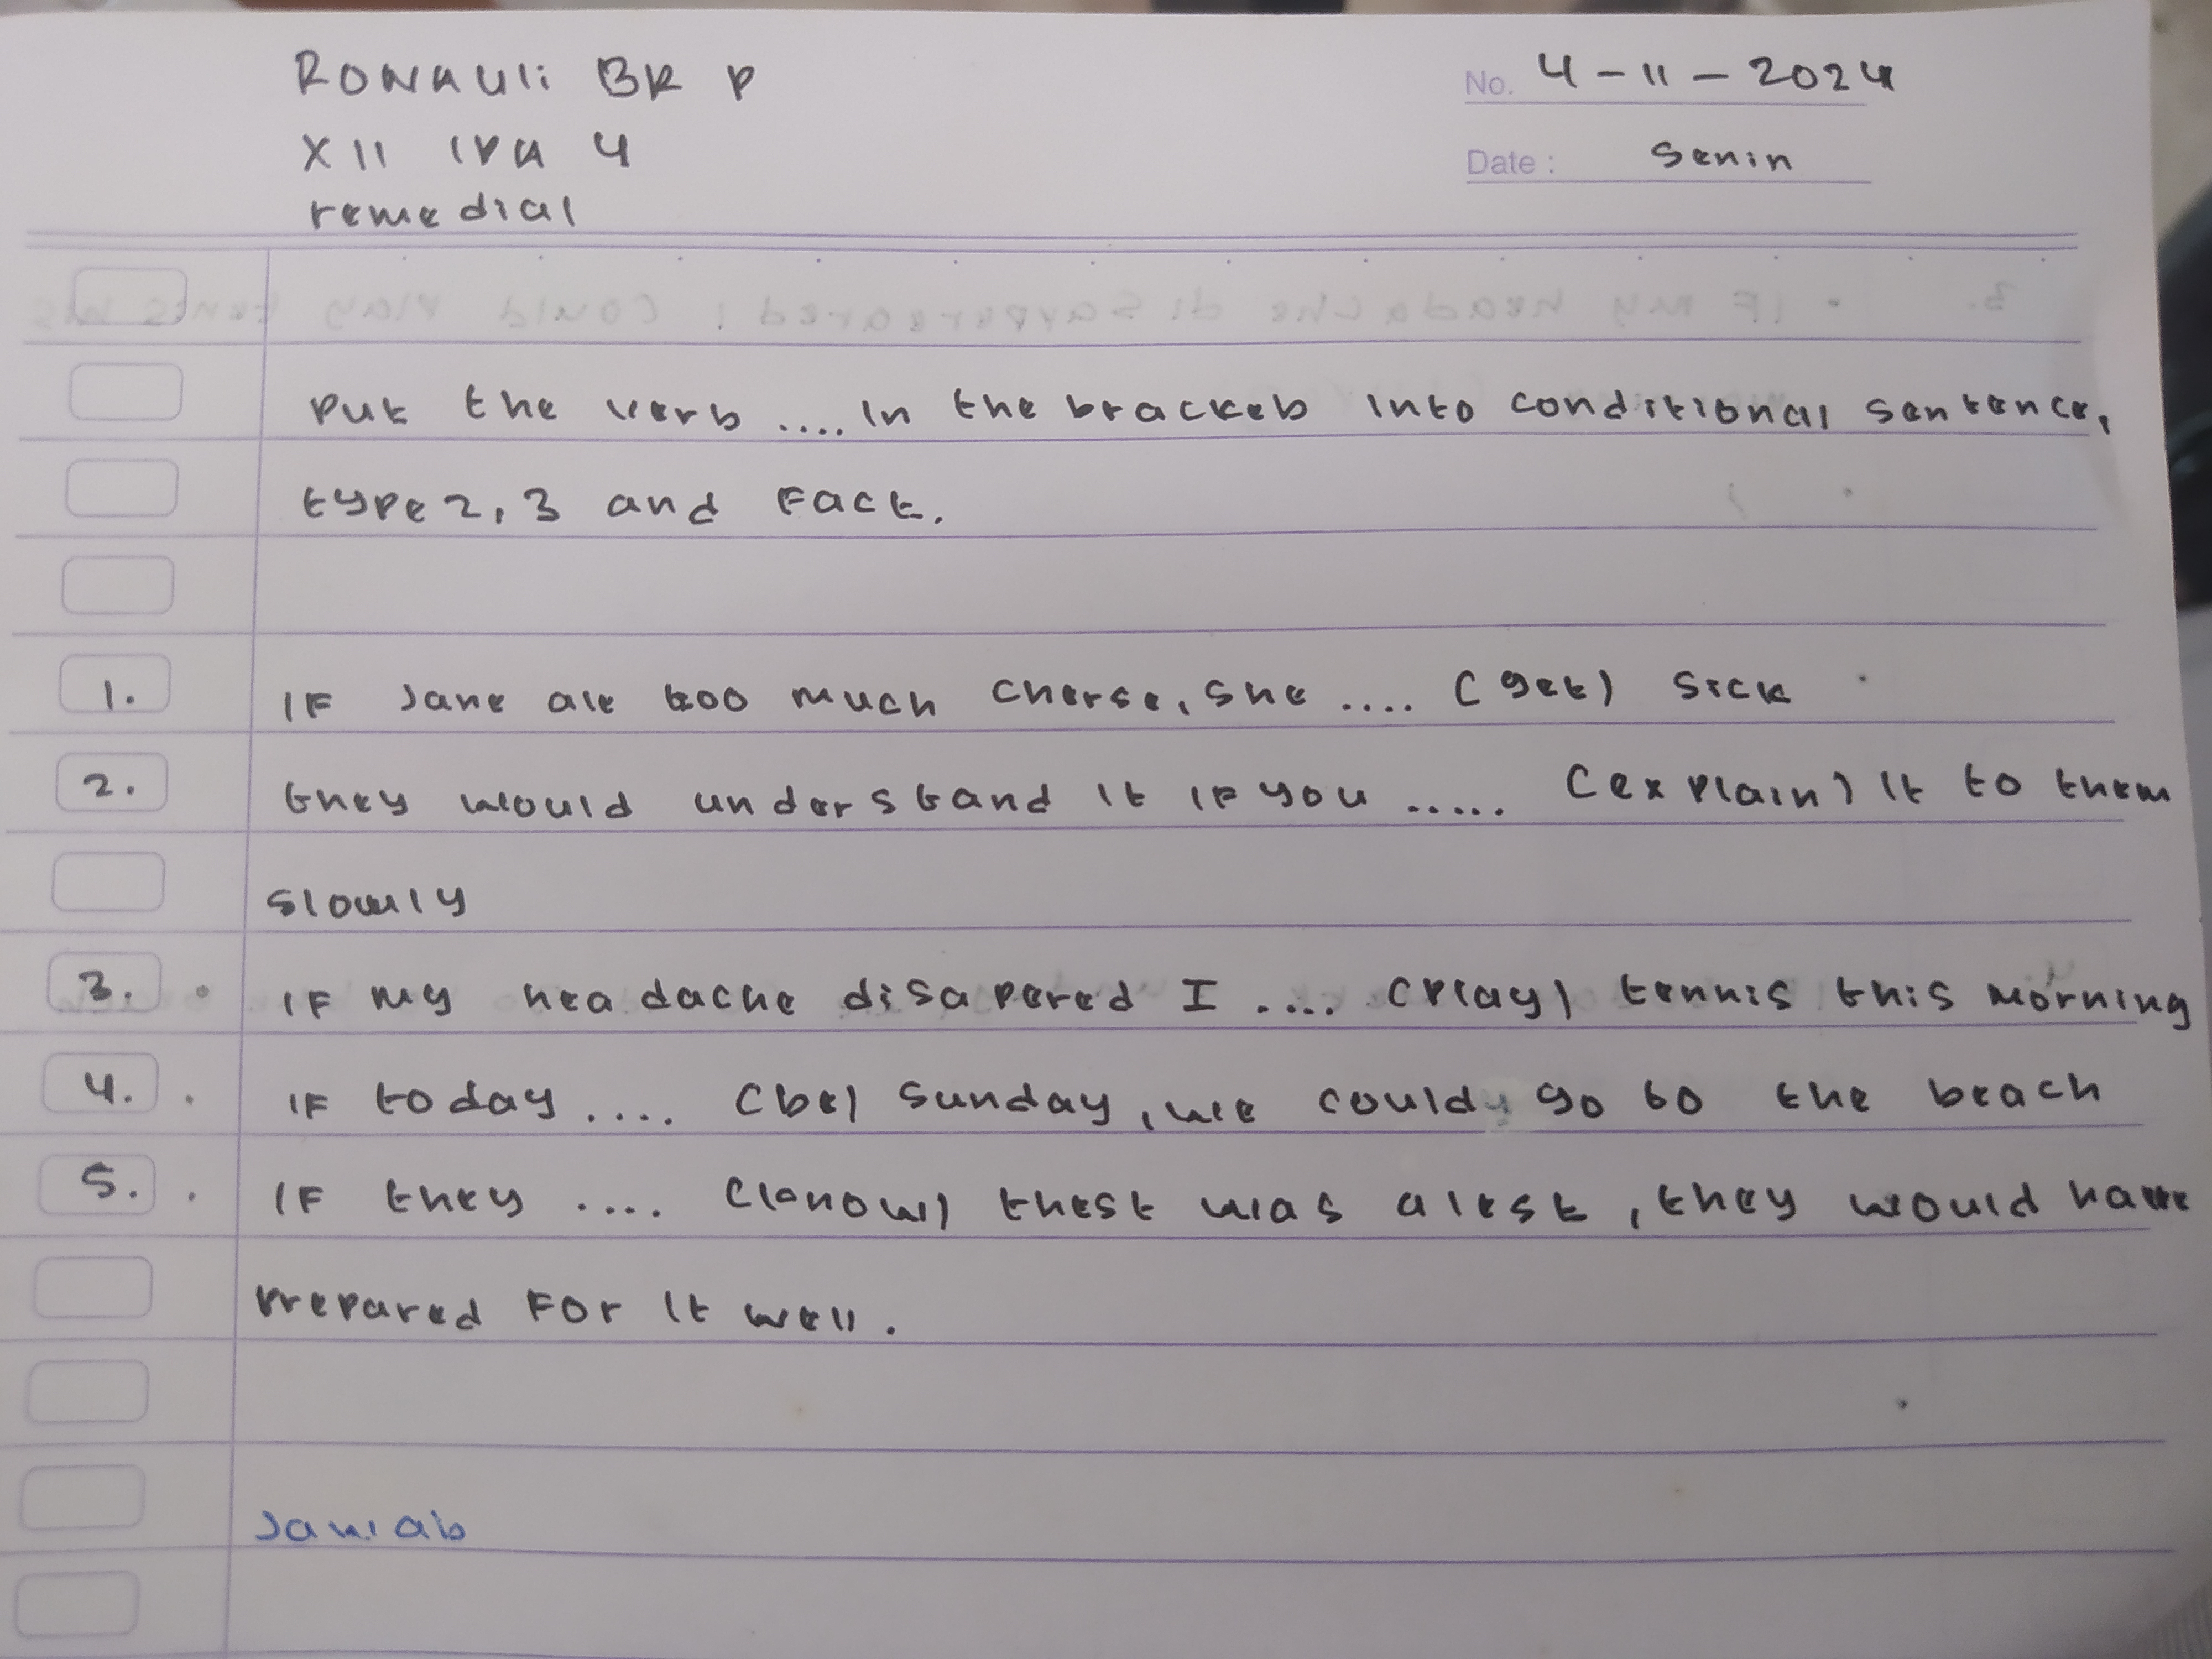 No. 4-11-2024
Date: Senin
RONAULI BR P
XII IPA 4
remedial
Put the verb .... in the bracket into conditional sentence,
type 2, 3 and Fact.
1. IF Jane ate too much cheese, she .... (get) sick
2. they would understand it if you ..... (explain) it to them
slowly
3. IF my headache disapered I .... (play) tennis this morning
4. IF today .... (be) sunday, we could go to the beach
5. IF they .... (know) thest was a lest, they would have
prepared For it well.
Jawab